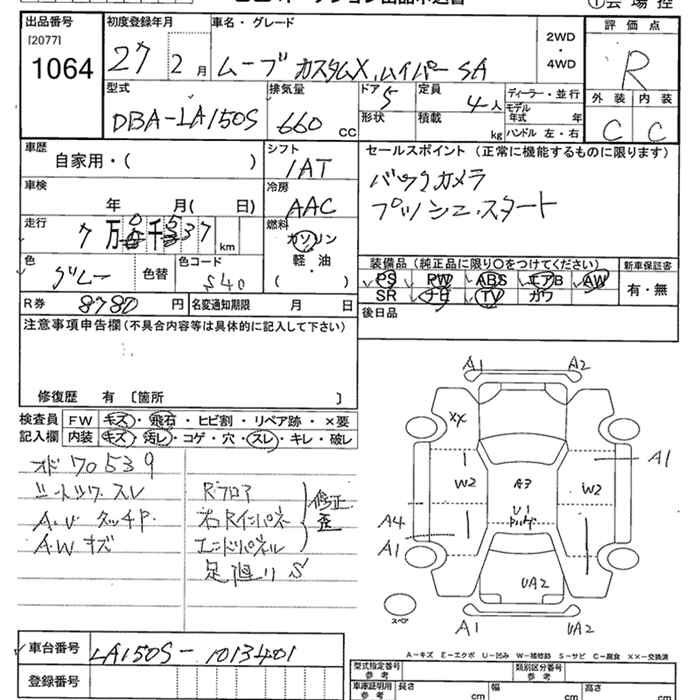 出品番号 初度登録年月 車名・グレード 2WD・4WD 評価点
[2077]
1064 27 2月 ムーブ カスタムX ハイパー SA R
型式 排気量 ドア 5 定員 4人 ディーラー・並行 外装 内装
DBA-LA150S 660 CC 形状 積載 kg モデル年式 年 ハンドル 左・右 C C
車歴 自家用・( ) シフト IAT セールスポイント (正常に機能するものに限ります)
車検 年 月( 日) 冷房 AAC バックカメラ
プッシュスタート
走行 7万 千 37 km 燃料 ガソリン
軽・油
( )
色 グレー 色替 色コード S40
装備品 (純正品に限り〇をつけてください) 新車保証書
PS PW ABS エアB AW 有・無
SR ナビ TV カワ
R券 8780 円 名変通知期限 月 日 後日品
注意事項申告欄(不具合内容等は具体的に記入して下さい)
修復歴 有 〔箇所 〕
検査員 FW キズ・飛石・ヒビ割・リペア跡・×要
記入欄 内装 キズ・汚レ・コゲ・穴・スレ・キレ・破レ
オド70539
シートツワスレ Rフロア
A.V タッチP 右Rインパネ 修正
A.W キズ エンドパネル 歪
足廻りS
A1 A2
XX
A1
W2 A3 W2
U1
A4
A1
UA2
スペア
A1 UA2
A-キズ E-エクボ U-凹み W-補修跡 S-サビ C-腐食 XX-交換済
車台番号 LA150S-1013401
登録番号
型式指定番号 参考 類別区分番号 参考
車庫証明用 参考 長さ cm 幅 cm 高さ cm